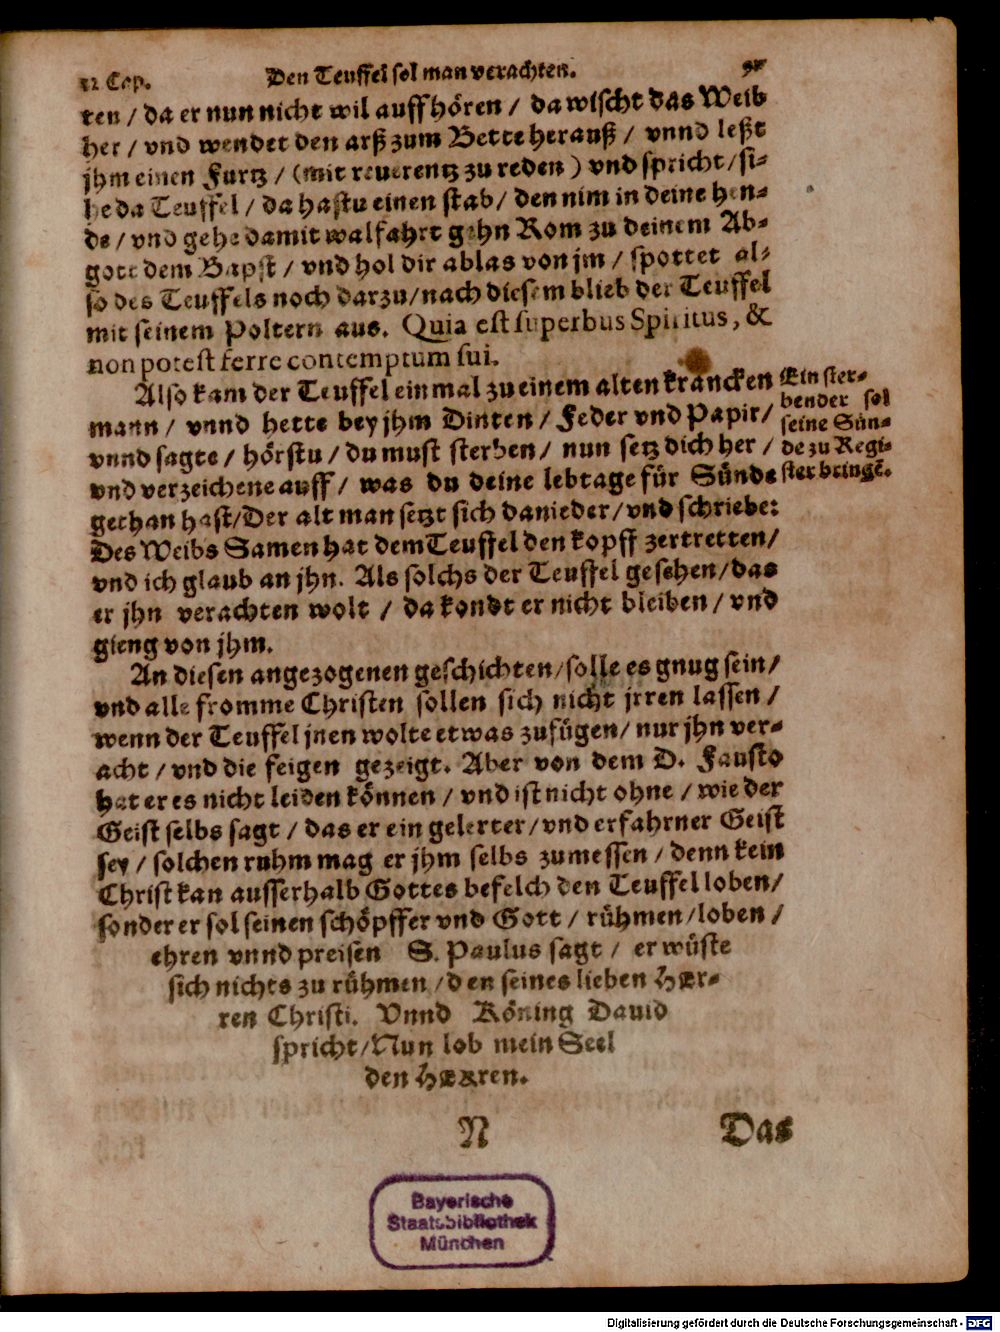 12 Cap. Den Teuffel sol man verachten.
ten / da er nun nicht wil auffhören / da wischt das Weib
her / vnd wendet den arß zum Bette herauß / vnnd leßt
jhm einen Furtz / (mit reuerentz zu reden ) vnd spricht / si-
he da Teuffel / da hastu einen stab / den nim in deine hen-
de / vnd gehe damit walfahrt gehn Rom zu deinem Ab-
gott dem Bapst / vnd hol dir ablas von jm / spottet al-
so des Teuffels noch darzu / nach diesem blieb der Teuffel
mit seinem Poltern aus. Quia est superbus Spiritus, &
non potest ferre contemptum sui.
Also kam der Teuffel einmal zu einem alten krancken
mann / vnnd hette bey jhm Dinten / Feder vnd Papir /
vnnd sagte / hörstu / du must sterben / nun setz dich her /
vnd verzeichene auff / was du deine lebtage für Sünde
gethan hast / Der alt man setzt sich danieder / vnd schriebe:
Des Weibs Samen hat dem Teuffel den kopff zertretten /
vnd ich glaub an jhn. Als solchs der Teuffel gesehen / das
er jhn verachten wolt / da kondt er nicht bleiben / vnd
gieng von jhm.
Ein ster-
bender sol
seine Sün-
de zu Regi-
ster bringē.
An diesen angezogenen geschichten / solle es gnug sein /
vnd alle fromme Christen sollen sich nicht jrren lassen /
wenn der Teuffel jnen wolte etwas zufügen / nur jhn ver-
acht / vnd die feigen gezeigt. Aber von dem D. Fausto
hat er es nicht leiden können / vnd ist nicht ohne / wie der
Geist selbs sagt / das er ein gelerter / vnd erfahrner Geist
sey / solchen ruhm mag er jhm selbs zumessen / denn kein
Christ kan ausserhalb Gottes befelch den Teuffel loben /
sonder er sol seinen schöpffer vnd Gott / rühmen / loben /
ehren vnnd preisen S. Paulus sagt / er wüste
sich nichts zu rühmen / den seines lieben HEr-
ren Christi. Vnnd Köning Dauid
spricht / Nun lob mein Seel
den HERren.
N Das
Bayerische
Staatsbibliothek
München
Digitalisierung gefördert durch die Deutsche Forschungsgemeinschaft - DFG